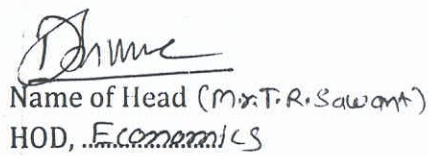 Name of Head (Mr.T.R.Sawant)
HOD, Economics